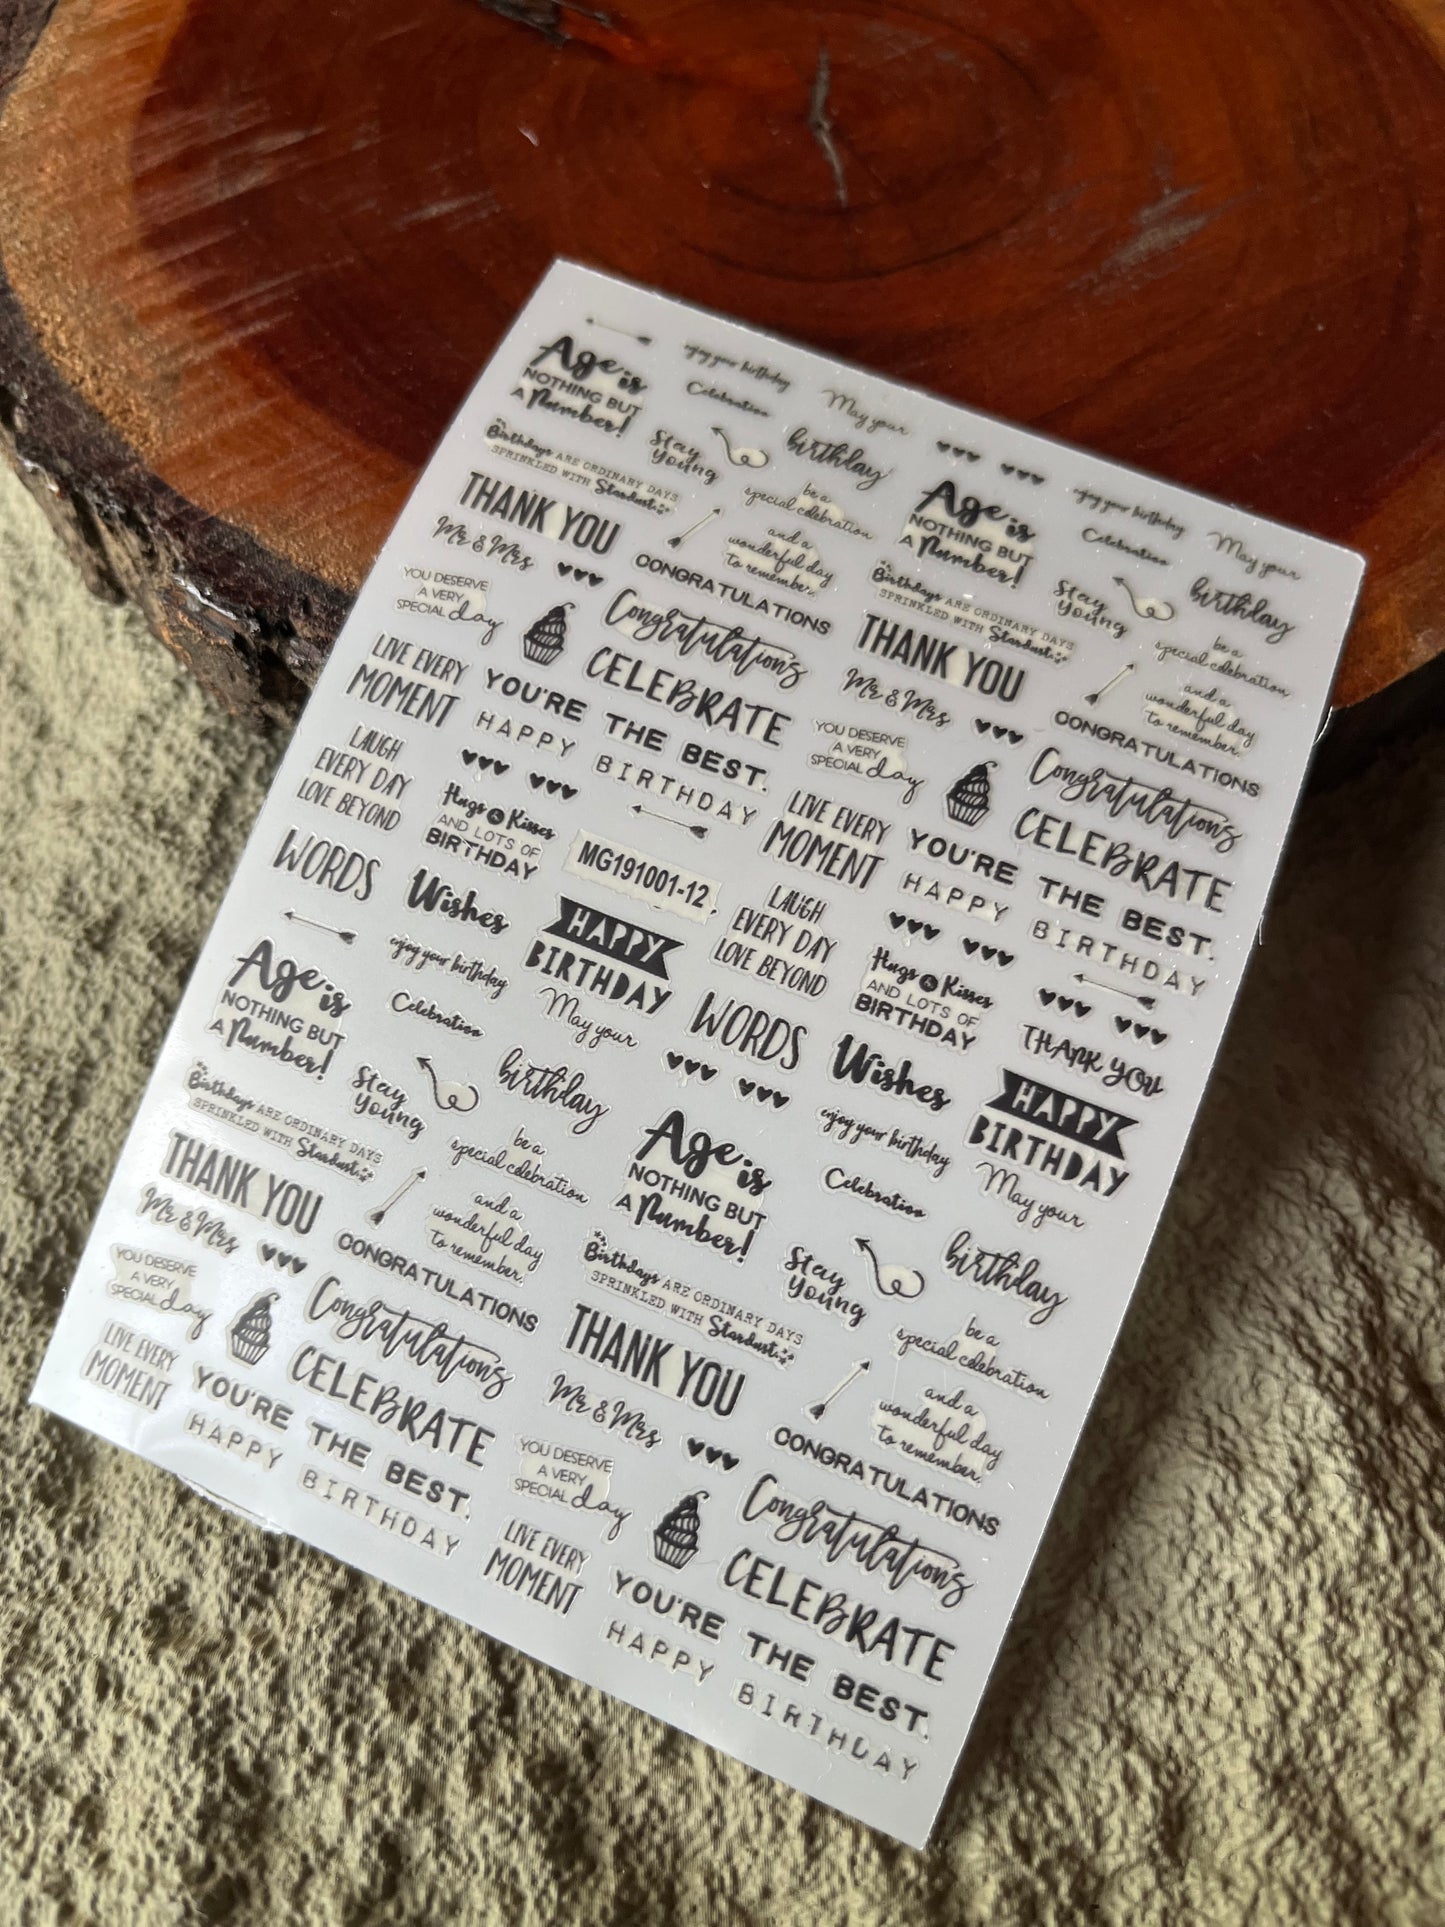 Age is
NOTHING BUT
A Number!
enjoy your birthday
Celebration
May your
Birthdays ARE ORDINARY DAYS
SPRINKLED WITH Stardust
Stay
young
birthday
be a
special celebration
THANK YOU
and a
wonderful day
to remember.
Mr & Mrs
CONGRATULATIONS
YOU DESERVE
A VERY
SPECIAL day
Congratulations
LIVE EVERY
MOMENT
CELEBRATE
YOU'RE THE BEST.
HAPPY BIRTHDAY
LAUGH
EVERY DAY
LOVE BEYOND
WORDS
Hugs & Kisses
AND LOTS OF
BIRTHDAY
Wishes
MG191001-12
HAPPY
BIRTHDAY
Age is
NOTHING BUT
A Number!
enjoy your birthday
Celebration
May your
Birthdays ARE ORDINARY DAYS
SPRINKLED WITH Stardust
Stay
young
birthday
be a
special celebration
THANK YOU
and a
wonderful day
to remember.
Mr & Mrs
CONGRATULATIONS
YOU DESERVE
A VERY
SPECIAL day
Congratulations
LIVE EVERY
MOMENT
CELEBRATE
YOU'RE THE BEST.
HAPPY BIRTHDAY
LAUGH
EVERY DAY
LOVE BEYOND
WORDS
Hugs & Kisses
AND LOTS OF
BIRTHDAY
Wishes
THANK YOU
HAPPY
BIRTHDAY
Age is
NOTHING BUT
A Number!
enjoy your birthday
Celebration
May your
Birthdays ARE ORDINARY DAYS
SPRINKLED WITH Stardust
Stay
young
birthday
be a
special celebration
THANK YOU
and a
wonderful day
to remember.
Mr & Mrs
CONGRATULATIONS
YOU DESERVE
A VERY
SPECIAL day
Congratulations
LIVE EVERY
MOMENT
CELEBRATE
YOU'RE THE BEST.
HAPPY BIRTHDAY
Age is
NOTHING BUT
A Number!
enjoy your birthday
Celebration
May your
Birthdays ARE ORDINARY DAYS
SPRINKLED WITH Stardust
Stay
young
birthday
be a
special celebration
THANK YOU
and a
wonderful day
to remember.
Mr & Mrs
CONGRATULATIONS
YOU DESERVE
A VERY
SPECIAL day
Congratulations
LIVE EVERY
MOMENT
CELEBRATE
YOU'RE THE BEST.
HAPPY BIRTHDAY